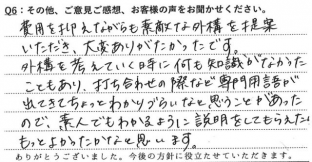 Q6：その他、ご意見ご感想、お客様の声をお聞かせください。
費用を抑えながらも素敵な外構を提案
いただき、大変ありがたかったです。
外構を考えていく時に何も知識がなかった
こともあり、打ち合わせの際など専門用語が
出てきてちょっとわかりづらいなと思うことがあった
ので、素人でもわかるように説明をしてもらえたら
もっとよかったかなと思います。
ありがとうございました。今後の方針に役立たせていただきます。